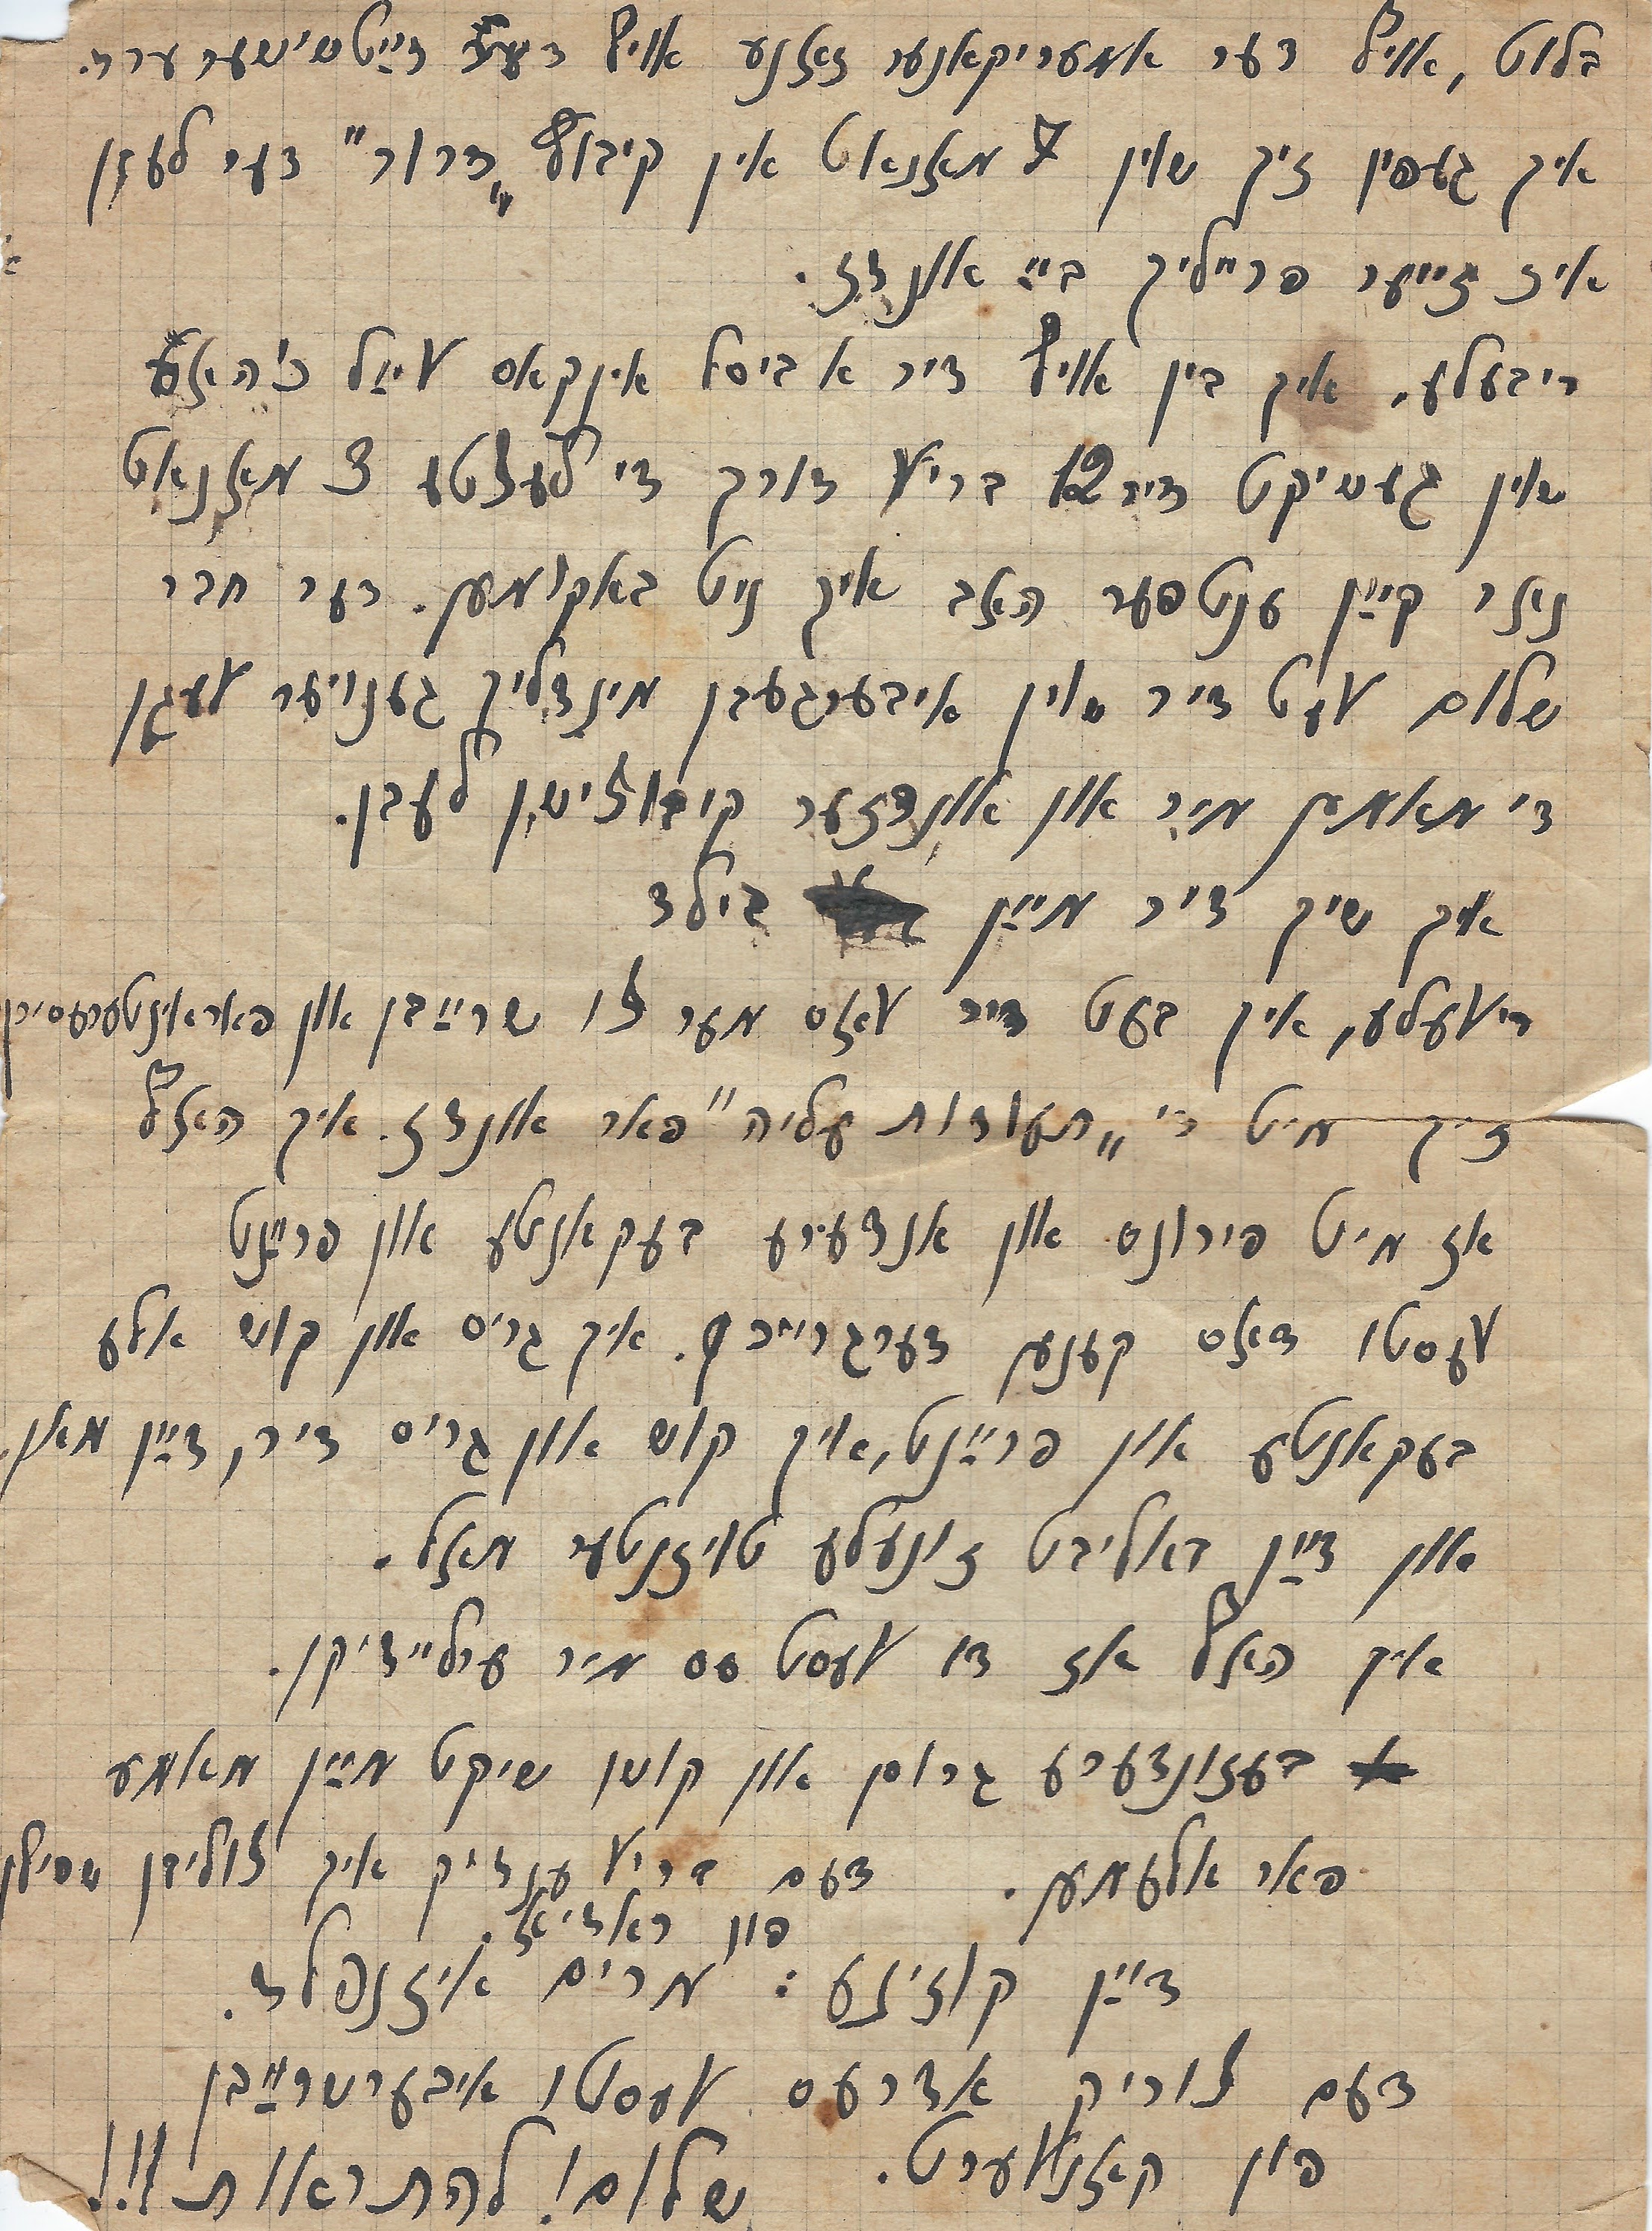 בלוט, אויף דער אמעריקאנער זאנע אויף דער דײַטשישער ערד.
איך געפין זיך שוין 7 מאנאט אין קיבוץ „דרור" דער לעבן
איז זייער פרייליך בײַ אונדז.
ריבעלע, איך בין אויף דיר א ביסל אינקאס ווײַל כ'האב
שוין געשיקט דיר 12 בריוו דורך די לעצטע 3 מאנאט
נאר קיין ענטפער האב איך ניט באקומען. דער חבר
שלום וועט דיר שוין איבערגעבן מינדליך גענויער וועגן
די מאמען מיר און אונדזער קיבוצישן לעבן.
איך שיק דיר מײַן בילד
ריוועלע, איך בעט דיר וואס מער צו שרײַבן און פאראינטערעסירן
זיך מיט די „תעודות עליה" פאר אונדז. איך האף
אז מיט פירונס און אנדערע בעקאנטע און פרײַנט
וועסטו דאס קענען דערגרייכן. איך גריס און קוש אלע
בעקאנטע און פרײַנט, אויך קוש און גריס דיר, דײַן מאן,
און דײַן באליבט זונעלע טויזנטער מאל.
איך האף אז דו וועסט עס מיר ערלײדיקן.
בעזונדערע גרוסן און קושן שיקט מײַן מאמע
פאר אלעמען. דעם בריוו ענדיק איך צוליבן שפילן
פון ראדיאָ.
דײַן קוזינע: מרים אײזנפלד.
דעם צוריק אדרעס וועסטו איבערשרײַבן
פון קאנווערט. שלום! להתראות!!!